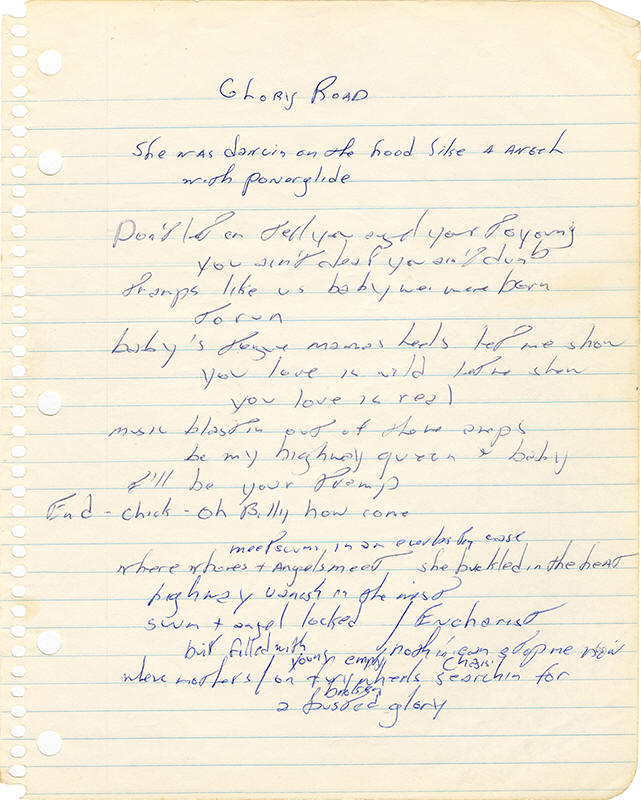 Glory Road
She was dancin on the hood like a angel
with powerglide
Don't let em tell you and your to young
you ain't deaf you ain't dumb
tramps like us baby we were born
to run
baby's tongue mamas heels let me show
you love is wild let me show
you love is real
music blastin out of the amps
be my highway queen & baby
I'll be your tramp
End - chick - Oh Billy how come
meet swim, in an everlastin
where whores + Angels meet she buckled in the heat
highway vanish in the mist
swim + angel locked / Eucharist
but filled with nothin can stop me now
young empty chasin
where mothers / on wheels searchin for
broken
a busted glory